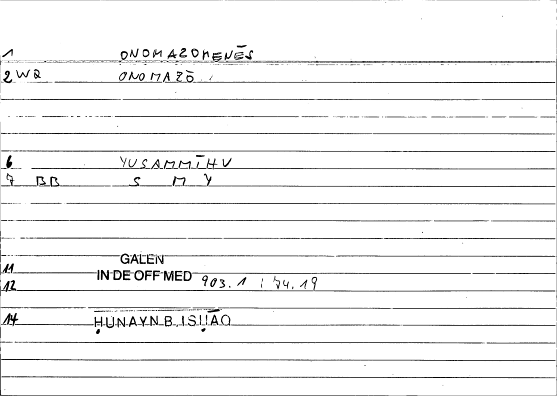 1 ONOMAZOMENĒS
2 WQ ONOMAZŌ
6 YUSAMMĪHU
7 BB S M Y
11 GALEN
12 IN DE OFF MED 903.1 : 74.19
14 ḤUNAYN B. ISḤĀQ